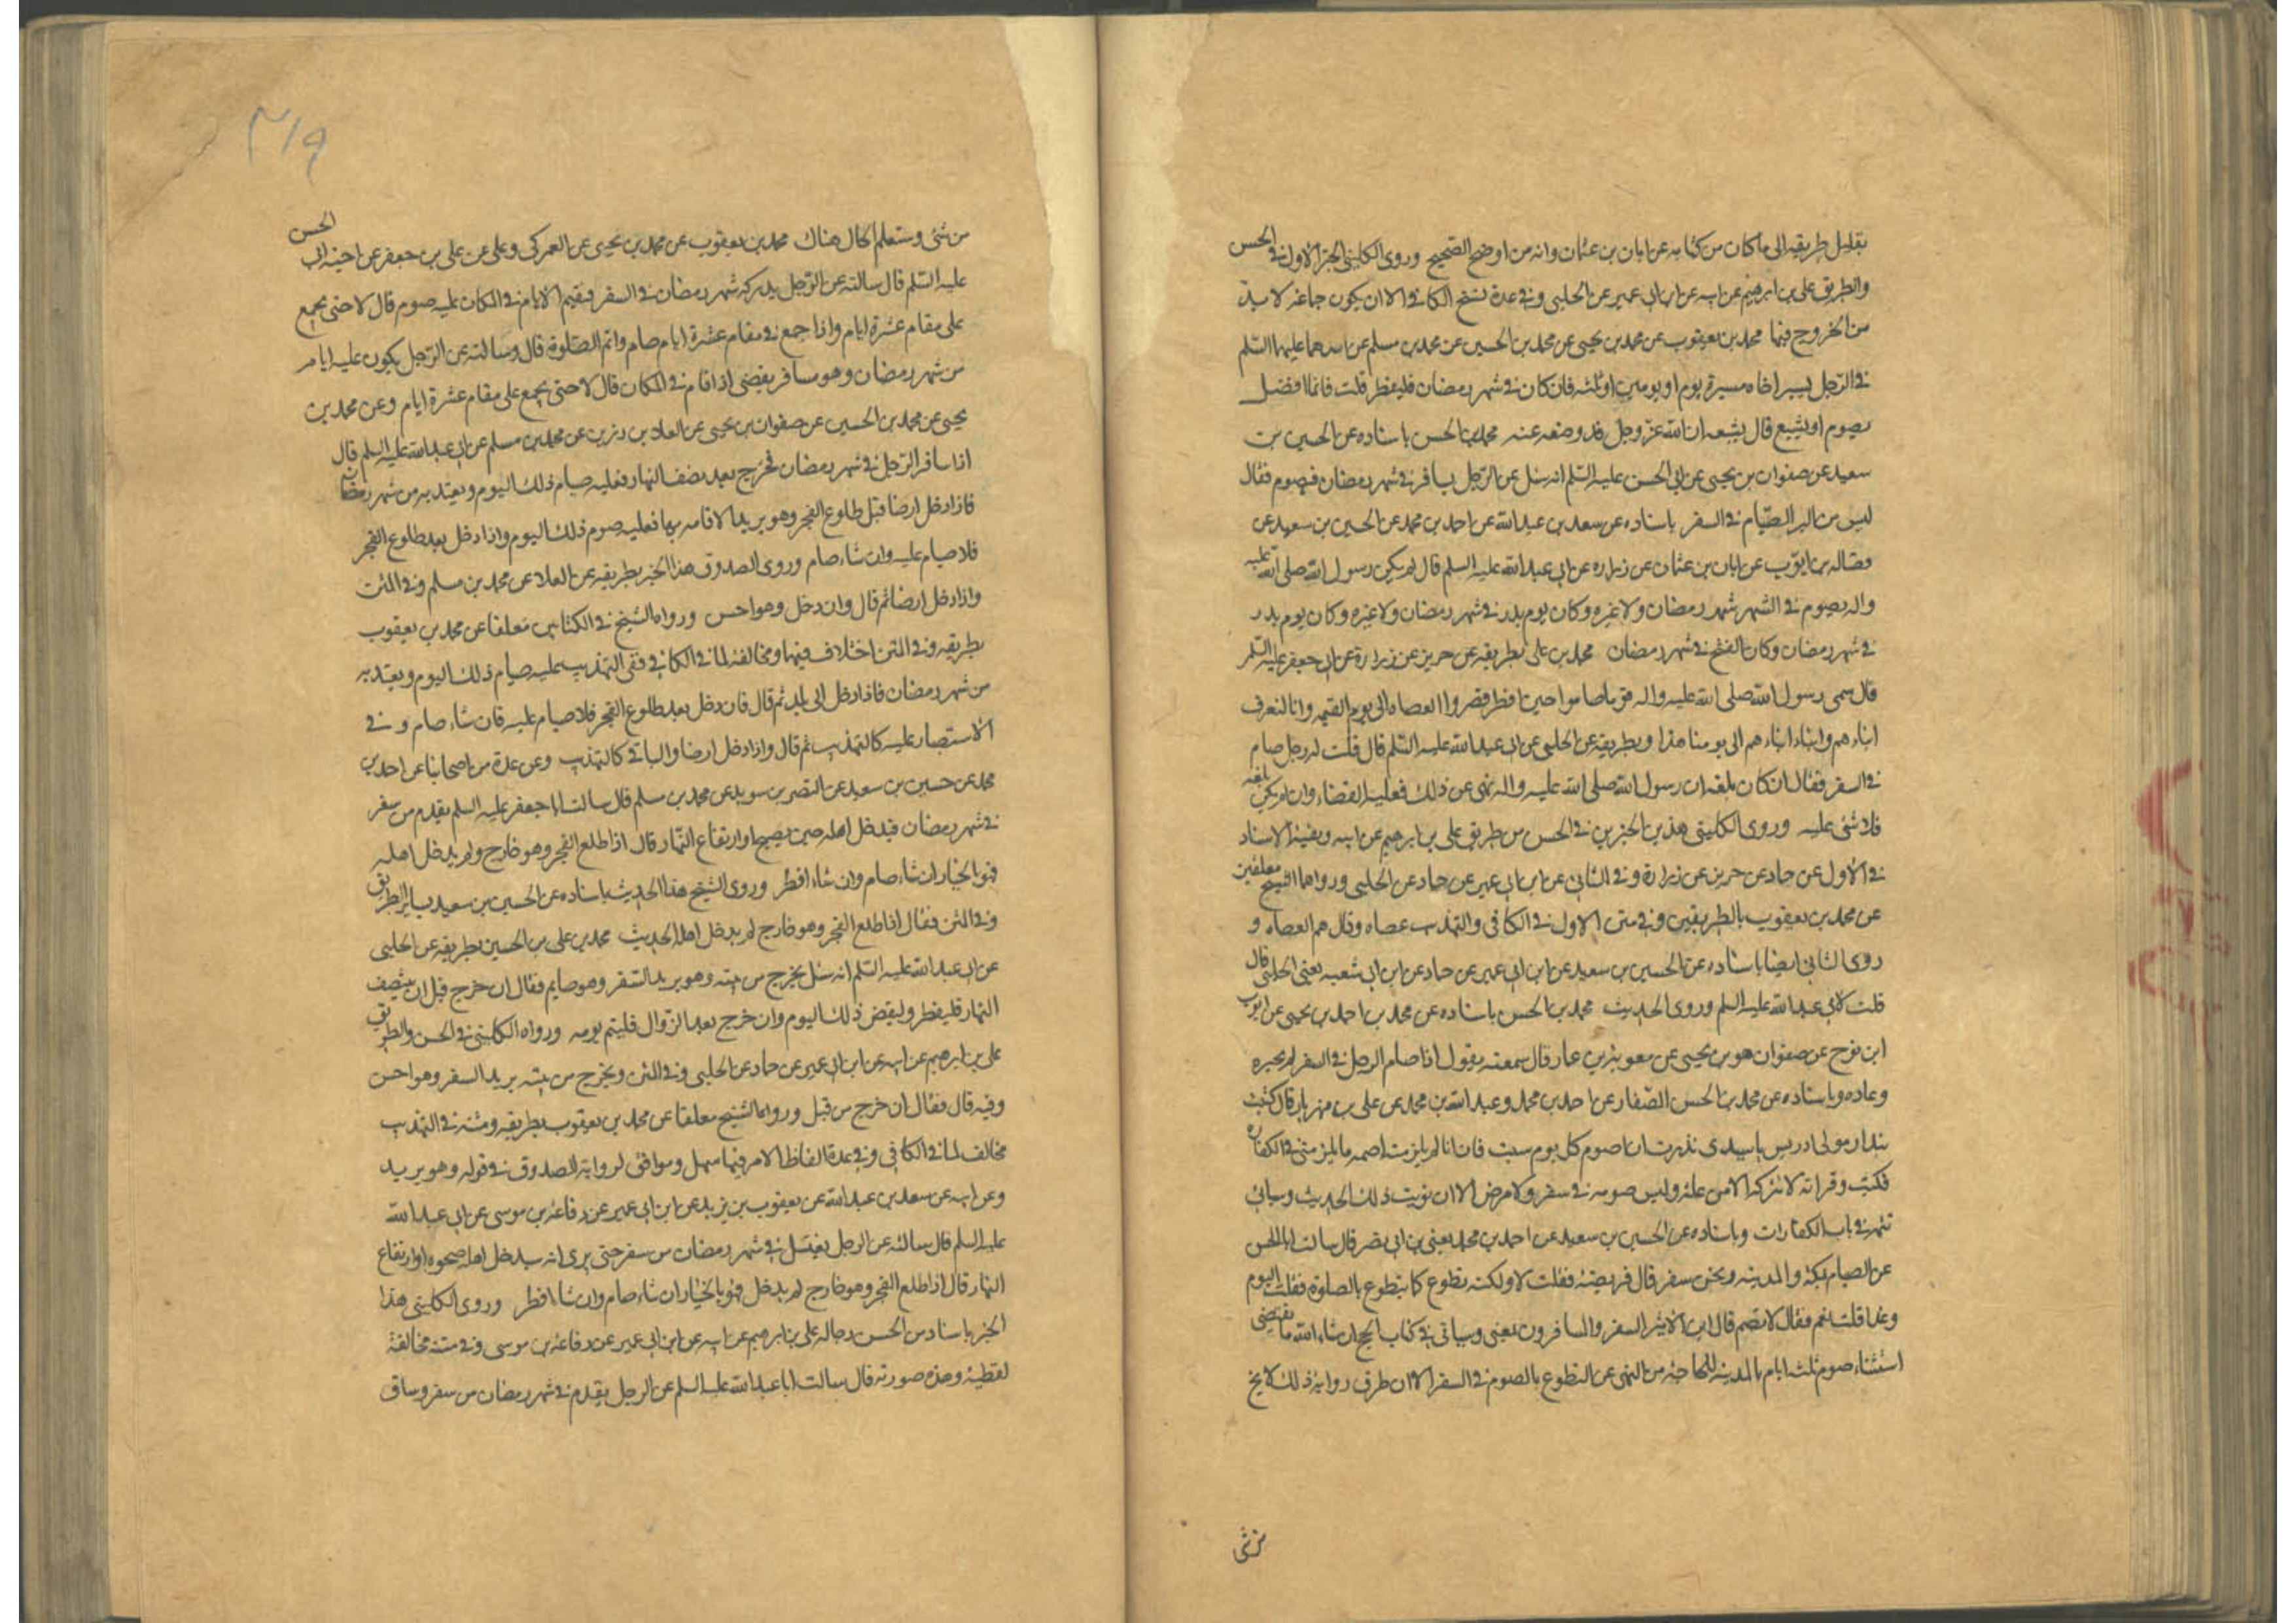 بقليل طريقه الى ما كان من كتابه عن ابان بن عثمان وانه من اوضح الصحيح وروى الكليني الخبر الاول في الحسن
والطريق علي بن ابرهيم عن ابيه عن ابن ابي عمير عن الحلبي وفي عدة نسخ الكافي الا ان يكون جماعة لا بد
من الخروج فيها محمد بن يعقوب عن محمد بن يحيى عن محمد بن الحسين عن محمد بن مسلم عن احدهما عليهما السلم
في الرجل يسير اخاه مسيرة يوم او يومين او ثلثه فان كان في شهر رمضان فليفطر قلت فانما افضل
يصوم او يشيع قال يشيعه ان الله عز وجل قد وضعه عنه محمد بن الحسن باسناده عن الحسين بن
سعيد عن صفوان بن يحيى عن ابي الحسن عليه السلم انه سئل عن الرجل يسافر في شهر رمضان فيصوم فقال
ليس من البر الصيام في السفر باسناده عن سعد بن عبد الله عن احمد بن محمد عن الحسين بن سعيد عن
فضاله بن ايوب عن ابان بن عثمان عن زراره عن ابي عبد الله عليه السلم قال لم يكن رسول الله صلى الله عليه
واله يصوم في السفر شهر رمضان ولا غيره وكان يوم بدر في شهر رمضان ولا غيره وكان يوم بدر
في شهر رمضان وكان الفتح في شهر رمضان محمد بن علي بطريقه عن حريز عن زرارة عن ابي جعفر عليه السلم
قال سمى رسول الله صلى الله عليه واله قوما صاموا حين افطر وقصروا العصاه الى يوم القيمه وانا لنعرف
ابناءهم وابناء ابناءهم الى يومنا هذا وبطريقه عن الحلبي عن ابي عبد الله عليه السلم قال قلت له رجل صام
في السفر فقال ان كان بلغه ان رسول الله صلى الله عليه واله نهى عن ذلك فعليه القضاء وان لم يكن بلغه
فلا شئ عليه وروى الكليني هذين الخبرين في الحسن من طريق علي بن ابرهيم عن ابيه وبقية الاسناد
في الاول عن حماد عن حريز عن زرارة وفي الثاني عن ابن ابي عمير عن حماد عن الحلبي ورواهما الشيخ معلقين
عن محمد بن يعقوب بالطريقين وفي متن الاول في الكافي والتهذيب عصاه وقال هم العصاه و
روى الثاني ايضا باسناده عن الحسين بن سعيد عن ابن ابي عمير عن حماد عن ابن ابي شعبه يعني الحلبي قال
قلت لابي عبد الله عليه السلم وروى الحديث محمد بن الحسن باسناده عن محمد بن احمد بن يحيى عن ايوب
ابن نوح عن صفوان هو بن يحيى عن معوية بن عمار قال سمعته يقول اذا صام الرجل في السفر لم يجزه
وعاده وباسناده عن محمد بن الحسن الصفار عن احمد بن محمد وعبد الله بن محمد عن علي بن مهزيار قال كتب
بندار مولى ادريس يا سيدي نذرت ان اصوم كل يوم سبت فان انا لم اصمه ما يلزمني في الكفاره
فكتب وقراته لا تتركه الا من علة وليس صومه في سفر ولا مرض الا ان نويت ذلك الحديث وسياتي
تتمه في باب الكفارات وباسناده عن الحسين بن سعيد عن احمد بن محمد يعني بن ابي نصر قال سالت ابا الحسن
عن الصيام بمكة والمدينه ونحن سفر قال فريضة فقلت لا ولكنه تطوع كما يتطوع بالصلوة فقلت اليوم
وغدا قلت نعم فقال لا تصم قال ابن الاثير السفر والمسافرون يعني وسياتي في كتاب الحج ان شاء الله ما يقتضي
استثناء صوم ثلثة ايام بالمدينة للحاجة من النهي عن التطوع بالصوم في السفر الا ان طرف رواية ذلك لا يخ
من شئ
٣١٩
من شئ وستعلم الحال هناك محمد بن يعقوب عن محمد بن يحيى عن العمركي وعلي عن علي بن جعفر عن اخيه ابي الحسن
عليه السلم قال سالته عن الرجل يدركه شهر رمضان في السفر فيقيم الايام في المكان عليه صوم قال لا حتى يجمع
على مقام عشرة ايام واذا جمع في مقام عشرة ايام صام واتم الصلوة قال وسالته عن الرجل يكون عليه ايام
من شهر رمضان وهو مسافر يقضي اذا اقام في المكان قال لا حتى يجمع على مقام عشرة ايام وعن محمد بن
يحيى عن محمد بن الحسين عن صفوان بن يحيى عن العلاء بن رزين عن محمد بن مسلم عن ابي عبد الله عليه السلم قال
اذا سافر الرجل في شهر رمضان فخرج بعد نصف النهار فعليه صيام ذلك اليوم ويعتد به من شهر رمضان
فاذا دخل ارضا قبل طلوع الفجر وهو يريد الاقامه بها فعليه صوم ذلك اليوم واذا دخل بعد طلوع الفجر
فلا صيام عليه وان شاء صام وروى الصدوق هذا الخبر بطريقه عن العلا عن محمد بن مسلم وفي المتن
واذا دخل ارضا ثم قال وان دخل وهو احسن ورواه الشيخ في الكتابين معلقا عن محمد بن يعقوب
بطريقه وفي المتن اختلاف فيها ومخالفة لما في الكافي ففي التهذيب عليه صيام ذلك اليوم ويعتد به
من شهر رمضان فاذا دخل الى بلد ثم قال فان دخل بعد طلوع الفجر فلا صيام عليه فان شاء صام و في
الاستبصار عليه كالتهذيب ثم قال واذا دخل ارضا والباقي كالتهذيب وعن عدة من اصحابنا عن احمد بن
محمد عن حسين بن سعيد عن النضر بن سويد عن محمد بن مسلم قال سالت ابا جعفر عليه السلم يقدم من سفر
في شهر رمضان فيدخل اهله حين يصبح او ارتفاع النهار قال اذا طلع الفجر وهو خارج ولم يدخل اهله
فهو بالخيار ان شاء صام وان شاء افطر وروى الشيخ هذا الحديث باسناده عن الحسين بن سعيد بساير الطريق
وفي المتن فقال اذا طلع الفجر وهو خارج لم يدخل اهله الحديث محمد بن علي بن الحسين بطريقه عن الحلبي
عن ابي عبد الله عليه السلم انه سئل يخرج من بيته وهو يريد السفر وهو صايم فقال ان خرج قبل ان ينتصف
النهار فليفطر وليقض ذلك اليوم وان خرج بعد الزوال فليتم يومه ورواه الكليني في الحسن والطريق
علي بن ابرهيم عن ابيه عن ابن ابي عمير عن حماد عن الحلبي وفي المتن ويخرج من بيته يريد السفر وهو احسن
وفيه قال فقال ان خرج من قبل ورواه الشيخ معلقا عن محمد بن يعقوب بطريقه ومتنه في التهذيب
مخالف لما في الكافي وفي عدة الفاظ الامر فيها سهل وموافق لرواية الصدوق في قوله وهو يريد
وعن ابيه عن سعد بن عبد الله عن يعقوب بن يزيد عن ابن ابي عمير عن رفاعة بن موسى عن ابي عبد الله
عليه السلم قال سالته عن الرجل يقبل في شهر رمضان من سفر حتى يرى انه سيدخل اهله ضحوه او ارتفاع
النهار قال اذا طلع الفجر وهو خارج لم يدخل فهو بالخيار ان شاء صام وان شاء افطر وروى الكليني هذا
الخبر باسناد من الحسن رجاله علي بن ابرهيم عن ابيه عن ابن ابي عمير عن رفاعة بن موسى وفي متنه مخالفة
لفظية وهذه صورته قال سالت ابا عبد الله عليه السلم عن الرجل يقدم في شهر رمضان من سفر وساق